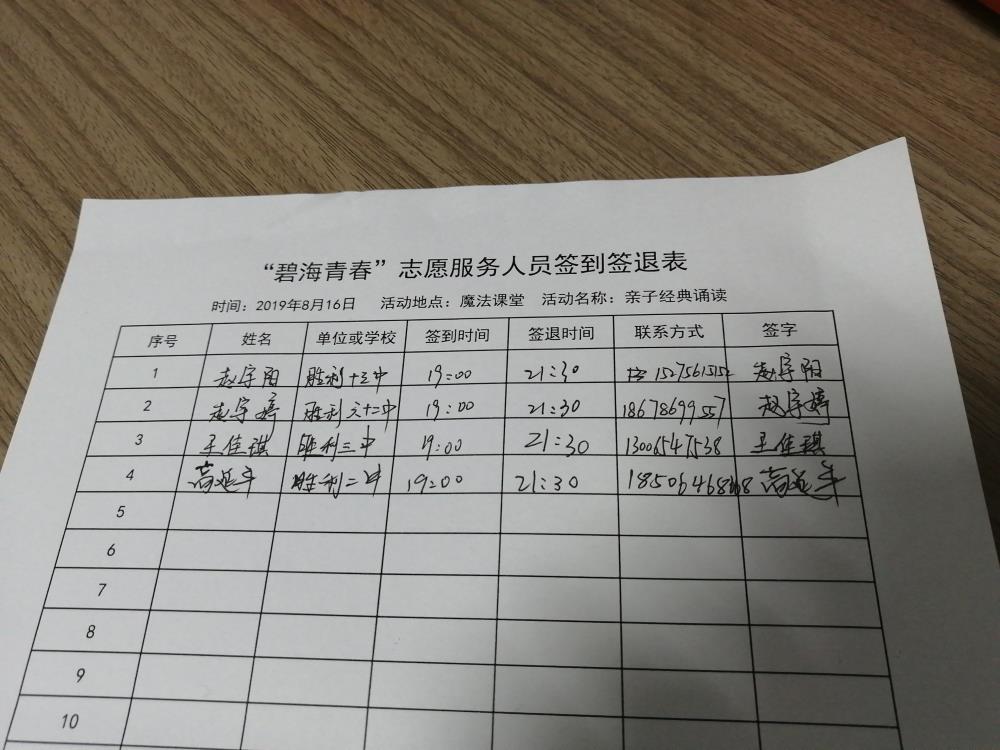 “碧海青春”志愿服务人员签到签退表
时间：2019年8月16日 活动地点：魔法课堂 活动名称：亲子经典诵读
序号 姓名 单位或学校 签到时间 签退时间 联系方式 签字
1 赵宇阳 胜利十三中 19:00 21:30 赵宇阳
2 赵宇婷 胜利六十二中 19:00 21:30 18678699557 赵宇婷
3 王佳琪 胜利三中 19:00 21:30 13006547538 王佳琪
4 高延年 胜利二中 19:00 21:30 高延年
5
6
7
8
9
10